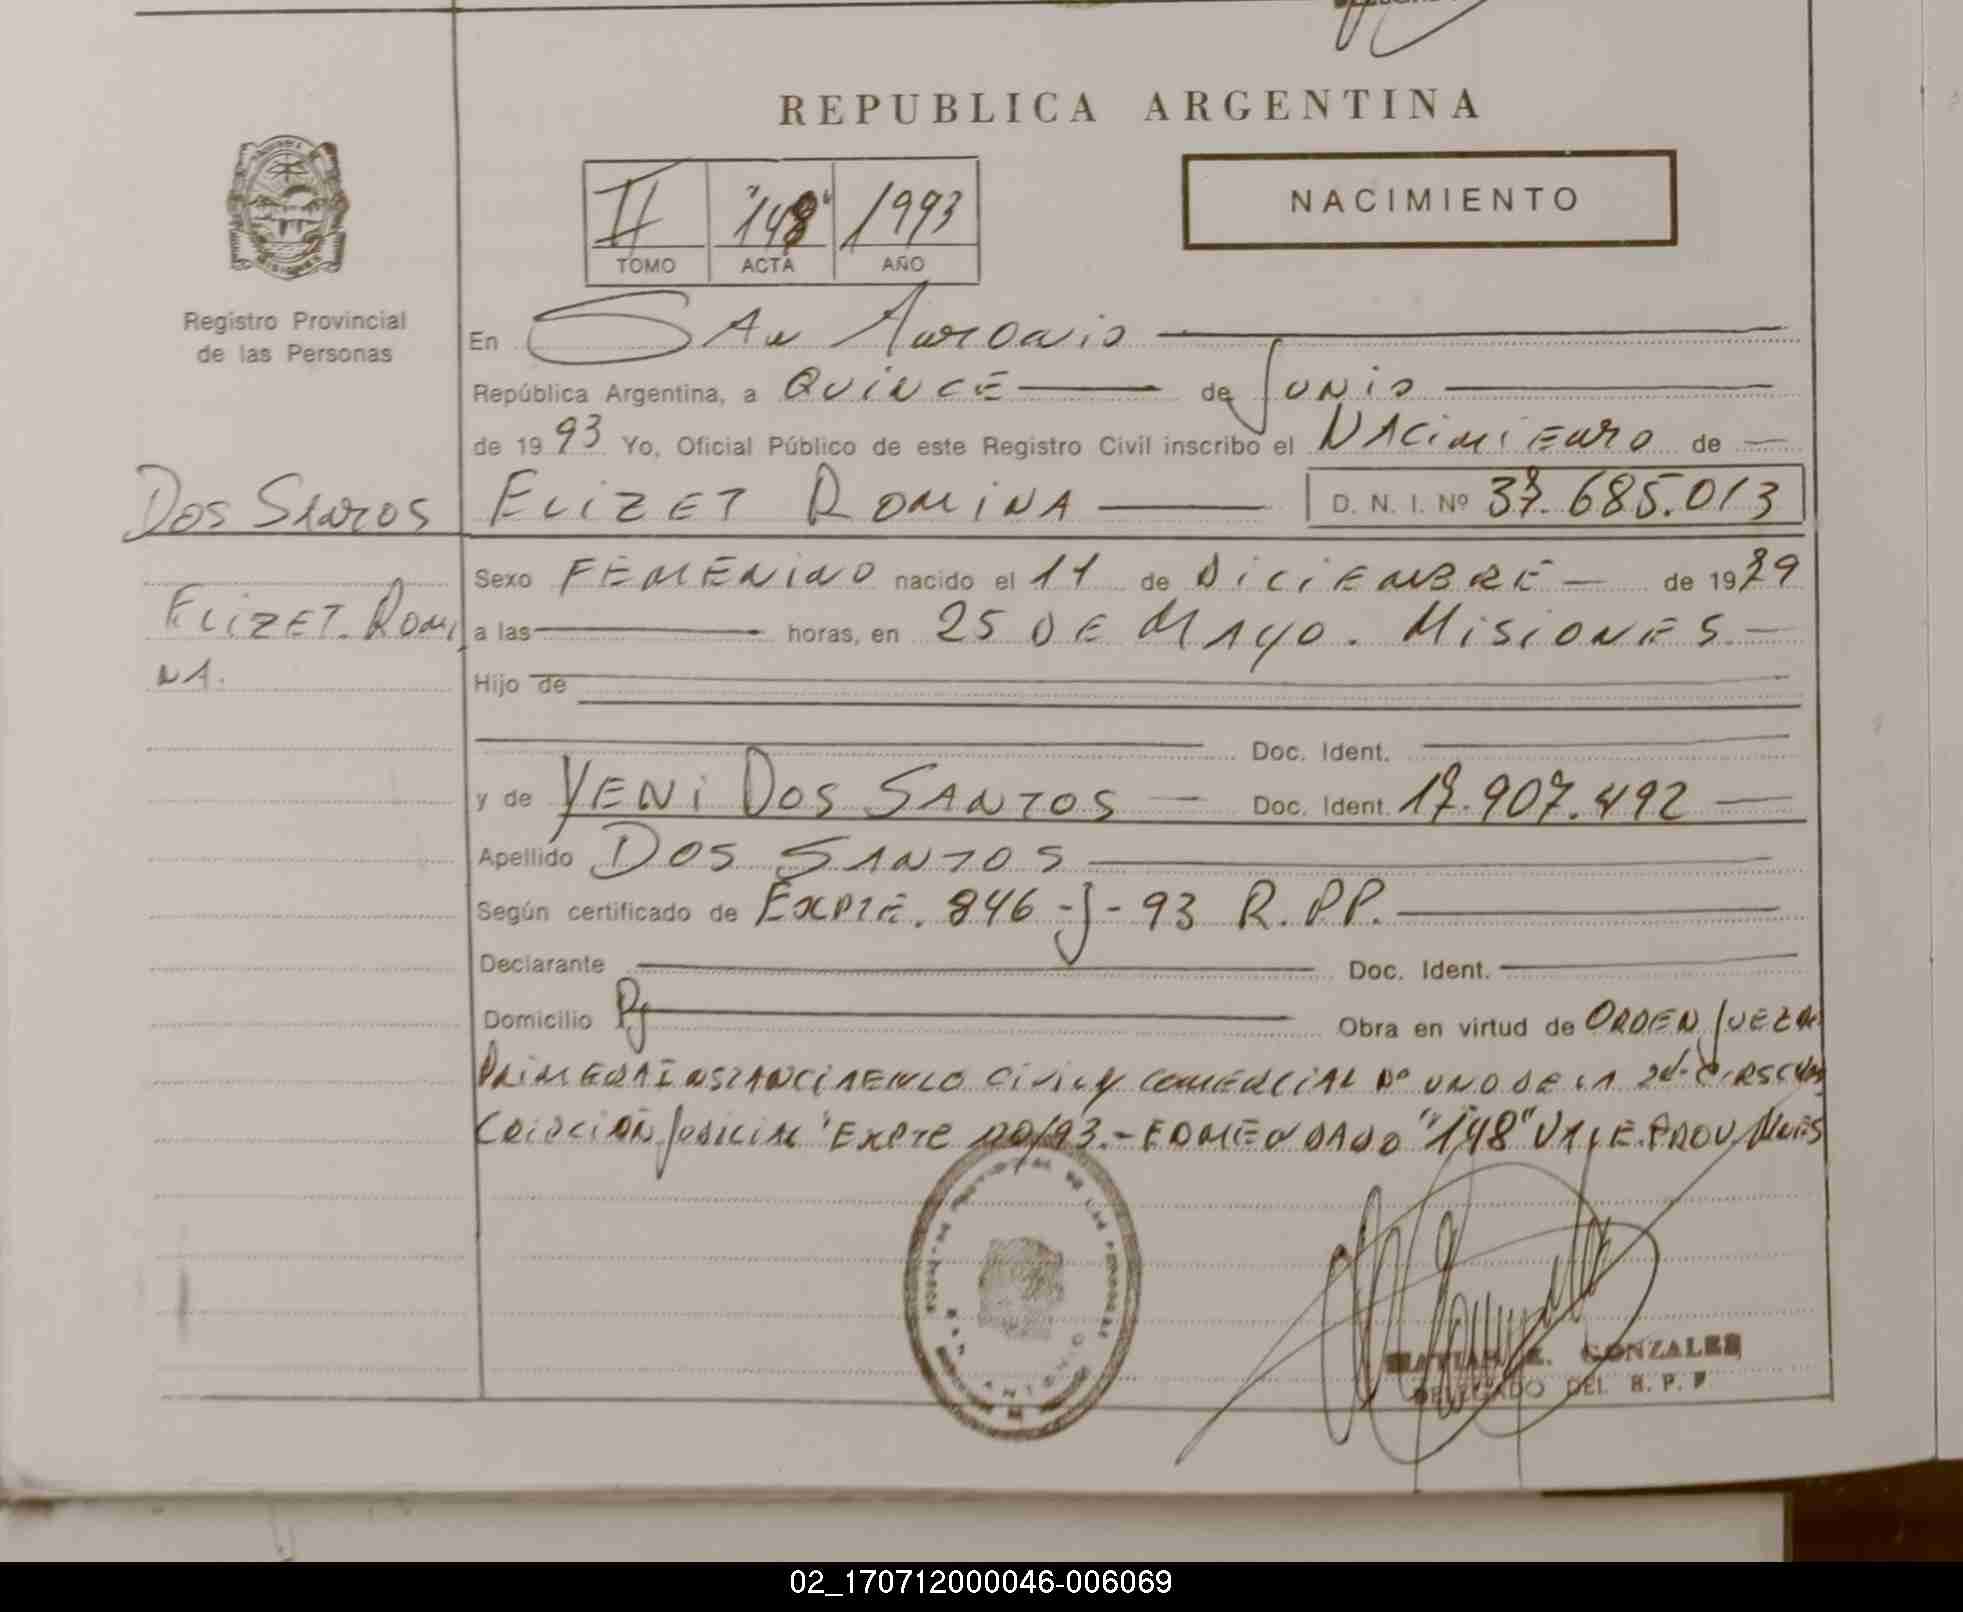 REPUBLICA ARGENTINA
NACIMIENTO
II "148" 1993
TOMO ACTA AÑO
Registro Provincial
de las Personas
En San Antonio
República Argentina, a Quince de Junio
de 1993 Yo, Oficial Público de este Registro Civil inscribo el Nacimiento de
Dos Santos
Elizet Romina D. N. I. Nº 37.685.013
Elizet Romi
na.
Sexo Femenino nacido el 11 de Diciembre de 19
a las horas, en 25 de Mayo. Misiones
Hijo de
Doc. Ident.
y de Yeni Dos Santos Doc. Ident. 17.907.492
Apellido Dos Santos
Según certificado de Expte. 846-J-93 R.PP.
Declarante Doc. Ident.
Domicilio Obra en virtud de Orden Juez de
Primera Instancia en lo Civil y Comercial Nº uno de la 2da. Circuns
cripción Judicial Expte /93.- Enmendado "148" Vale.
GONZALES
DELEGADO DEL R. P. P
02_170712000046-006069